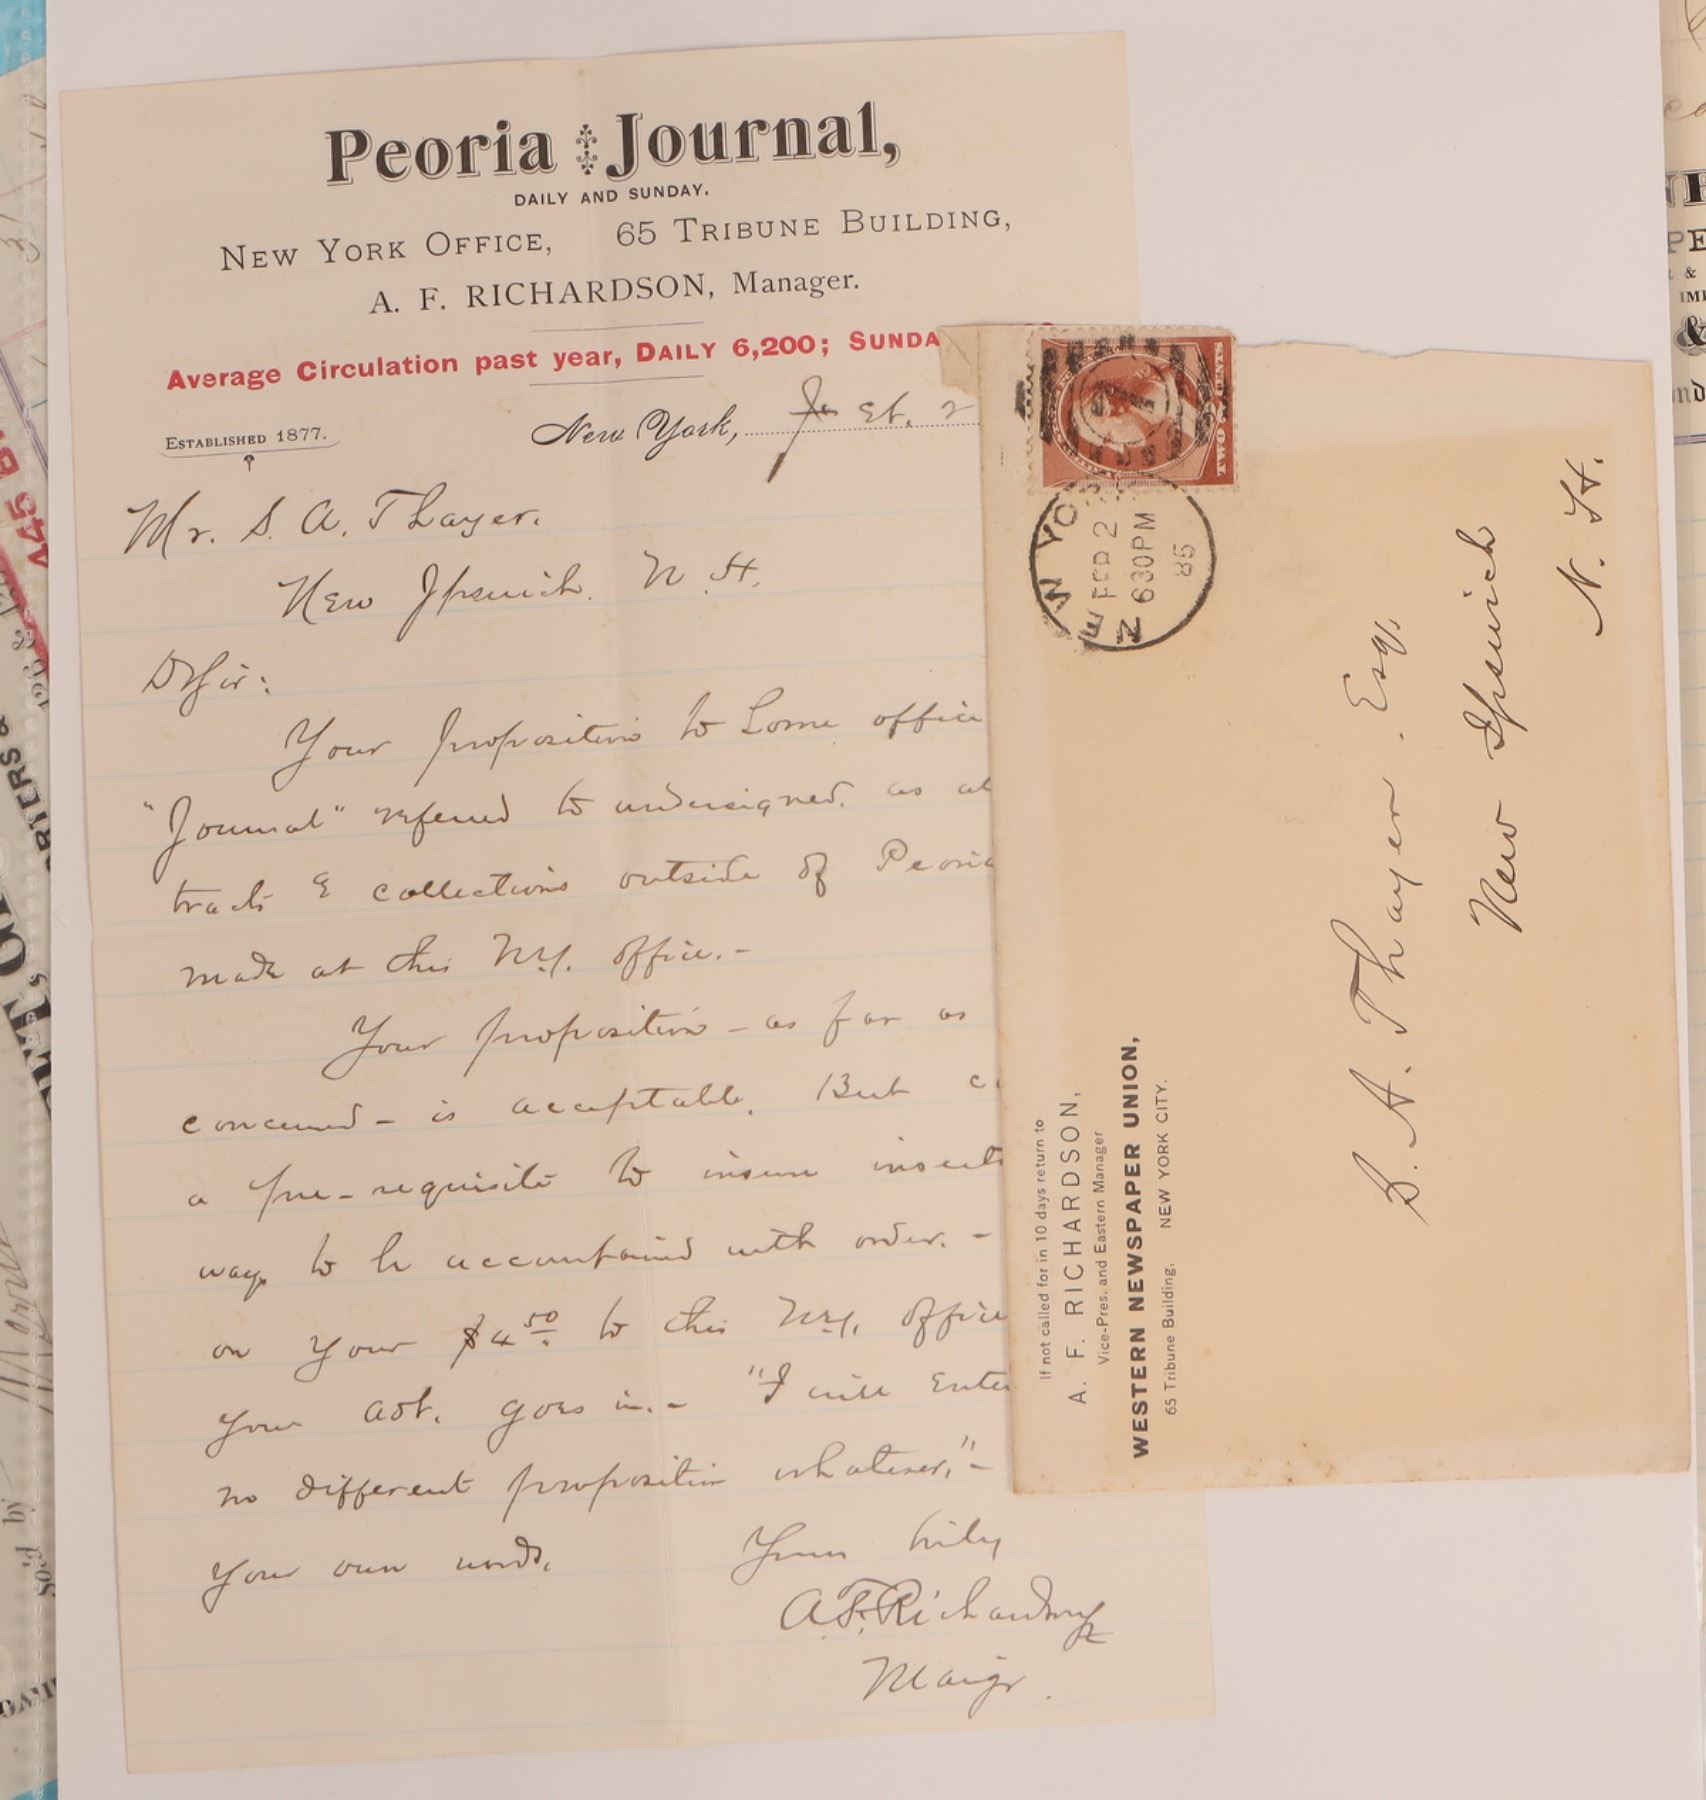 Peoria Journal,
DAILY AND SUNDAY.
NEW YORK OFFICE, 65 TRIBUNE BUILDING,
A. F. RICHARDSON, Manager.
Average Circulation past year, DAILY 6,200; SUNDA
ESTABLISHED 1877.
New York, Feb. 2
Mr. S. A. Thayer.
New Ipswich. N. H.
D Sir:
Your proposition to home office
"Journal" referred to undersigned. as al
tracts & collections outside of Peoria
made at this N.Y. office.-
Your proposition - as far as
concerned - is acceptable. But c
a pre-requisite to insure inserti
way to be accompanied with order. -
on your $4.50 to this N.Y. office
your adt. goes in. - "I will enter
no different proposition whatever," -
your own words.
Yours truly
A. F. Richardson
Mangr.
TWO CENTS
NEW YO
FEB 2
630PM
85
If not called for in 10 days return to
A. F. RICHARDSON,
Vice-Pres. and Eastern Manager
WESTERN NEWSPAPER UNION,
65 Tribune Building, NEW YORK CITY.
S. A. Thayer. Esq.
New Ipswich
N. H.